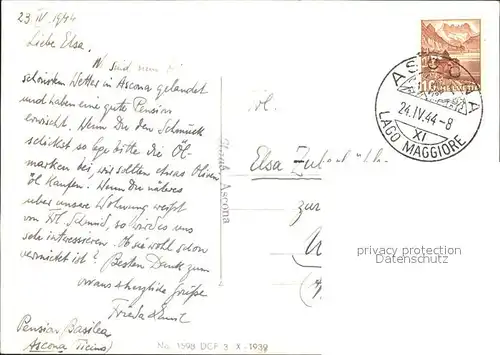 23. IV. 1944
Liebe Elsa,
Wir sind nun bei
schönstem Wetter in Ascona gelandet
und haben eine gute Pension
erwischt. Wenn Du den Schmuck
schickst so lege bitte die Öl-
marken bei, wir sollten etwas Oliven
öl kaufen. Wenn Du näheres
über unsere Wohnung weisst
von Frl. Schmid, so würde es uns
sehr interessieren. Ob sie wohl schon
vermietet ist? Besten Dank zum
voraus & herzliche Grüsse
Frieda & Ernst
Pension Basilea
Ascona (Ticino)
Ascona
No. 1598 DCF 3 X - 1939
HELVETIA
10
ASCONA
24.IV.44-8
XI
LAGO MAGGIORE
Frl.
Elsa
zur
privacy protection
www.ansichtskarten-center.de